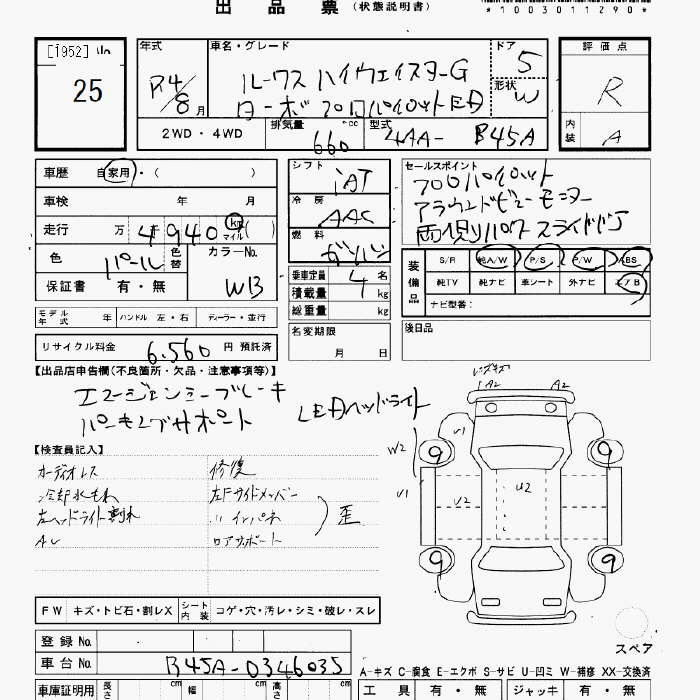 出 品 票 (状態説明書)
*1003011290*
[1952] Un
25
年式 R4/8月
車名・グレード
ルークス ハイウェイスターG
ターボ プロパイロットED
ドア 5
形状 W
評価点
R
内装 A
2WD・4WD
排気量 660 cc
型式 4AA- B45A
車歴 自家用・( )
車検 年 月
走行 万 4千940 km マイル ( )
色 パール 色替
カラーNo. WB
保証書 有・無
シフト iAT
冷房 AAC
燃料 ガソリン
乗車定員 4 名
積載量 kg
総重量 kg
名変期限
月 日
セールスポイント
プロパイロット
アラウンドビューモニター
両側パワースライドドア
装備品
S/R 純A/W P/S P/W ABS
純TV 純ナビ 車シート 外ナビ エアB
ナビ型番:
後日品
モデル年式 年 ハンドル 左・右 ディーラー・並行
リサイクル料金 6,560 円 預託済
【出品店申告欄(不良箇所・欠品・注意事項等)】
エマージェンシーブレーキ
パーキングサポート
LEDヘッドライト
【検査員記入】
オーディオレス
冷却水もれ
左ヘッドライト割れ
AU
修復
左Fサイドメンバー
〃インパネ
ロアサポート
歪
A2 A2
V1
W2
V1
V2
U2
9 9
9 9
スペア
FW キズ・トビ石・割レX シート内装 コゲ・穴・汚レ・シミ・破レ・スレ
登録No.
車台No. B45A-0346035
A-キズ C-腐食 E-エクボ S-サビ U-凹ミ W-補修 XX-交換済
車庫証明用 長さ cm 幅 cm 高さ cm
工具 有・無 ジャッキ 有・無